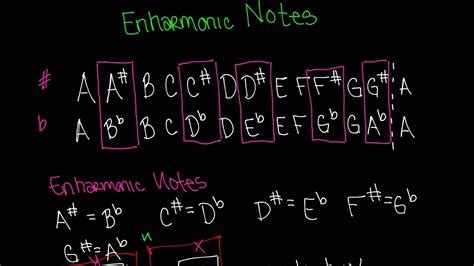 Enharmonic Notes
# A A# B C C# D D# E F F# G G# A
b A Bb B C Db D Eb E F Gb G Ab A
Enharmonic Notes
A# = Bb C# = Db D# = Eb F# = Gb
G# = Ab
x